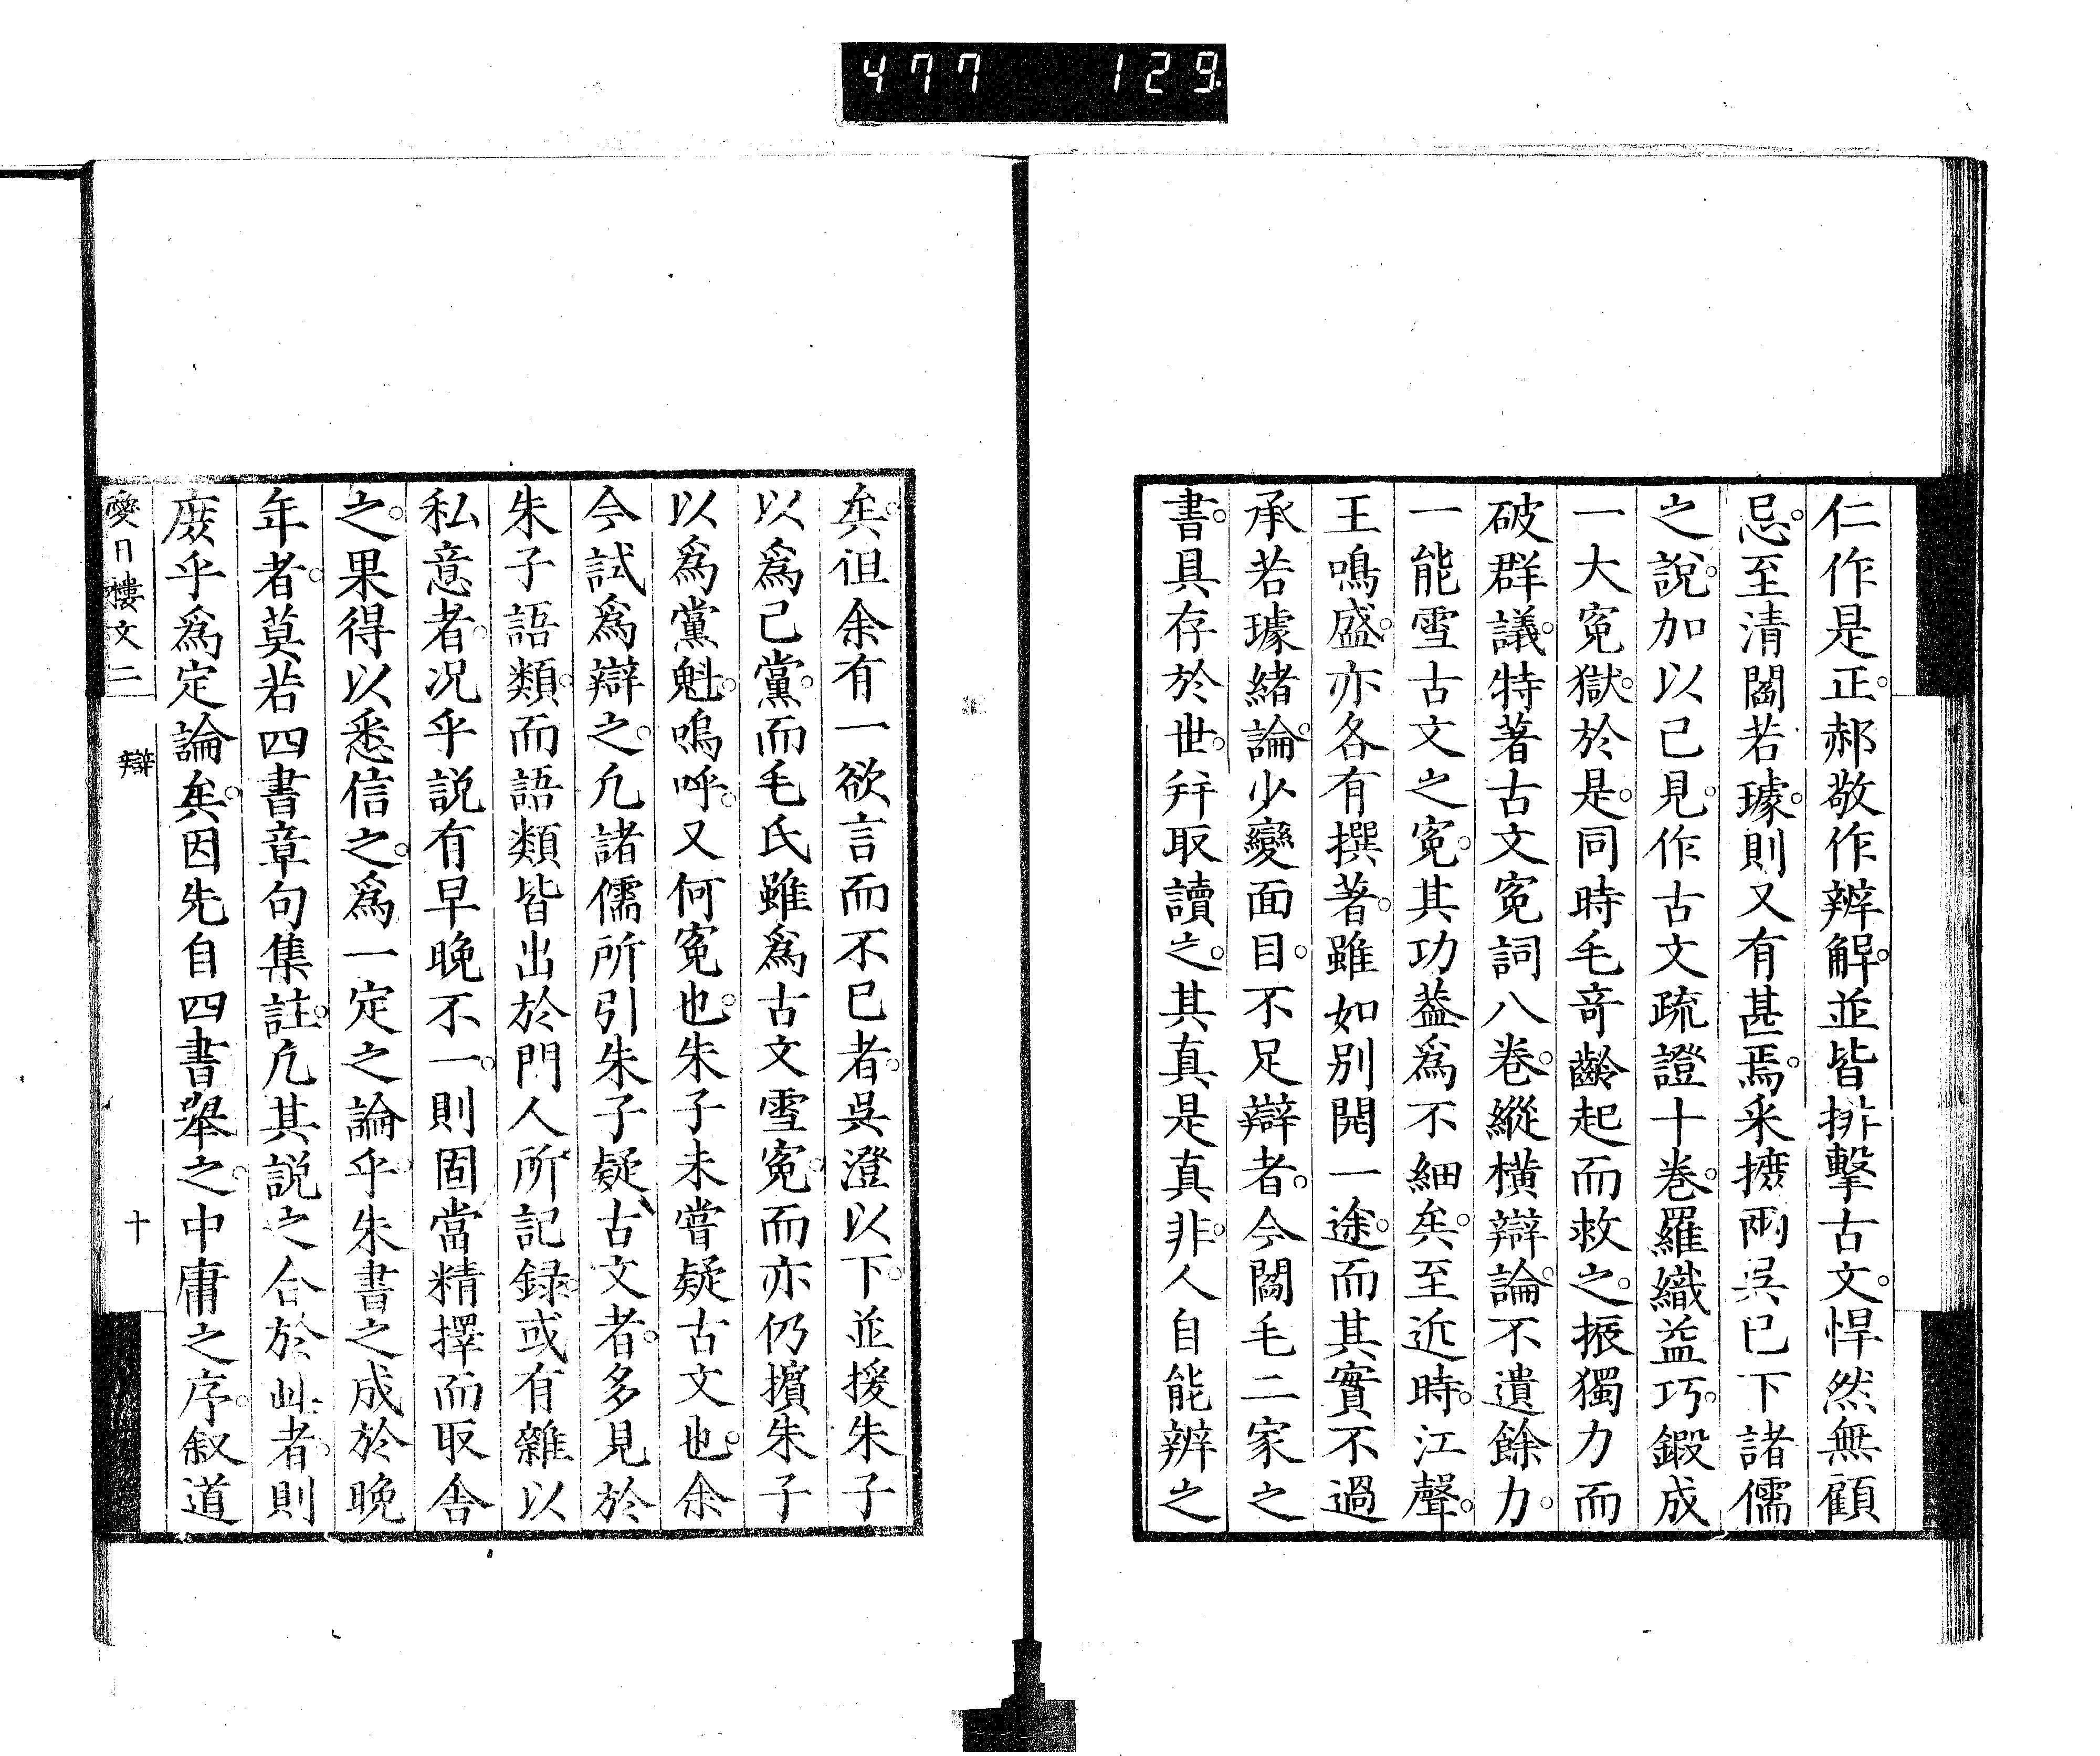 477 129
仁作是正。郝敬作辨解。並皆排擊古文。悍然無顧
忌。至清閻若璩。則又有甚焉。采摭兩吳已下諸儒
之說。加以己見。作古文疏證十卷。羅織益巧。鍛成
一大冤獄。於是。同時毛奇齡起而救之。振獨力而
破群議。特著古文冤詞八卷。縱橫辯論。不遺餘力。
一能雪古文之冤。其功葢爲不細矣。至近時。江聲。
王鳴盛。亦各有撰著。雖如別開一途。而其實不過
承若璩緒論。少變面目。不足辯者。今閻毛二家之
書。具存於世。幷取讀之。其真是真非。人自能辨之
矣。但余有一欲言而不已者。吳澄以下。並援朱子
以爲己黨。而毛氏雖爲古文雪冤。而亦仍擯朱子
以爲黨魁。嗚呼。又何冤也。朱子未嘗疑古文也。余
今試爲辯之。凡諸儒所引朱子疑古文者。多見於
朱子語類。而語類皆出於門人所記録。或有雜以
私意者。況乎説有早晚不一。則固當精擇而取舍
之。果得以悉信之。爲一定之論乎。朱書之成於晚
年者。莫若四書章句集註。凡其説之合於此者。則
庶乎爲定論矣。因先自四書舉之。中庸之序。叙道
愛日樓文二 辯 十